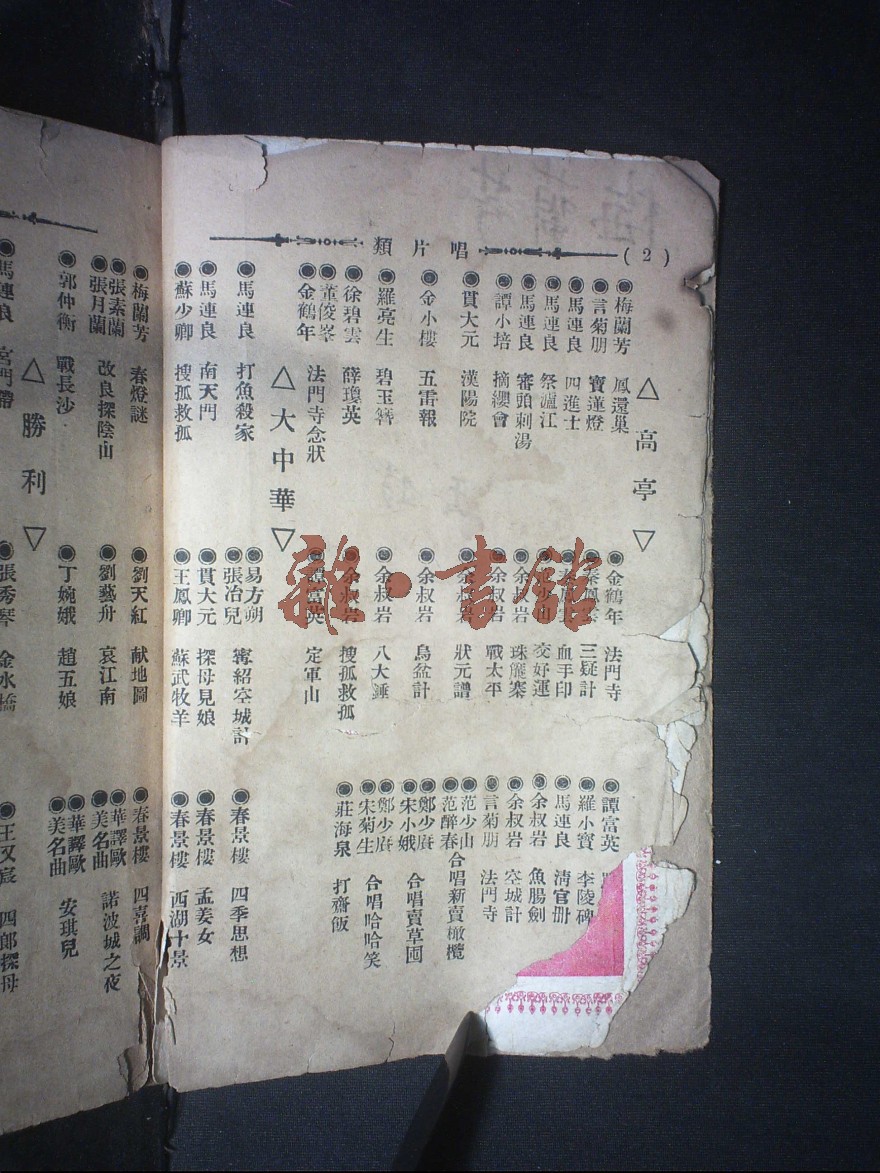 (2)
唱片類
△高亭▽
梅蘭芳 鳳還巢
言菊朋 寶蓮燈
馬連良 四進士
馬連良 祭瀘江
馬連良 審頭刺湯
譚小培 摘纓會
貫大元 漢陽院
金小樓 五雷報
羅亮生 碧玉簪
徐碧雲 薛瓊英
董俊峯
金鶴年 法門寺念狀
金鶴年 法門寺
三疑計
血手印
交好運
余叔岩 珠簾寨
余叔岩 戰太平
余叔岩 狀元譜
余叔岩 烏盆計
余叔岩 八大錘
余叔岩 搜孤救孤
譚富英 定軍山
譚富英
羅小寶 李陵碑
馬連良 清官冊
余叔岩 魚腸劍
余叔岩 空城計
言菊朋 法門寺
范少山
范醉春 合唱新賣橄欖
鄭少賡
宋小娥 合唱賣草囤
鄭少賡
宋菊生 合唱哈哈笑
莊海泉 打齋飯
△大中華▽
馬連良 打魚殺家
馬連良 南天門
蘇少卿 搜孤救孤
梅蘭芳 春燈謎
張素蘭
張月蘭 改良探陰山
郭仲衡 戰長沙
易方朔
張冶兒 寗紹空城計
貫大元 探母見娘
王鳳卿 蘇武牧羊
劉天紅 献地圖
劉藝舟 哀江南
丁婉娥 趙五娘
春景樓 四季思想
春景樓 孟姜女
春景樓 西湖十景
春景樓 四喜調
華譯歐
美名曲 諾波城之夜
華譯歐
美名曲 安琪兒
△勝利▽
馬連良 宮門帶
張秀琴 金水橋
王又宸 四郎探母
雜·書館